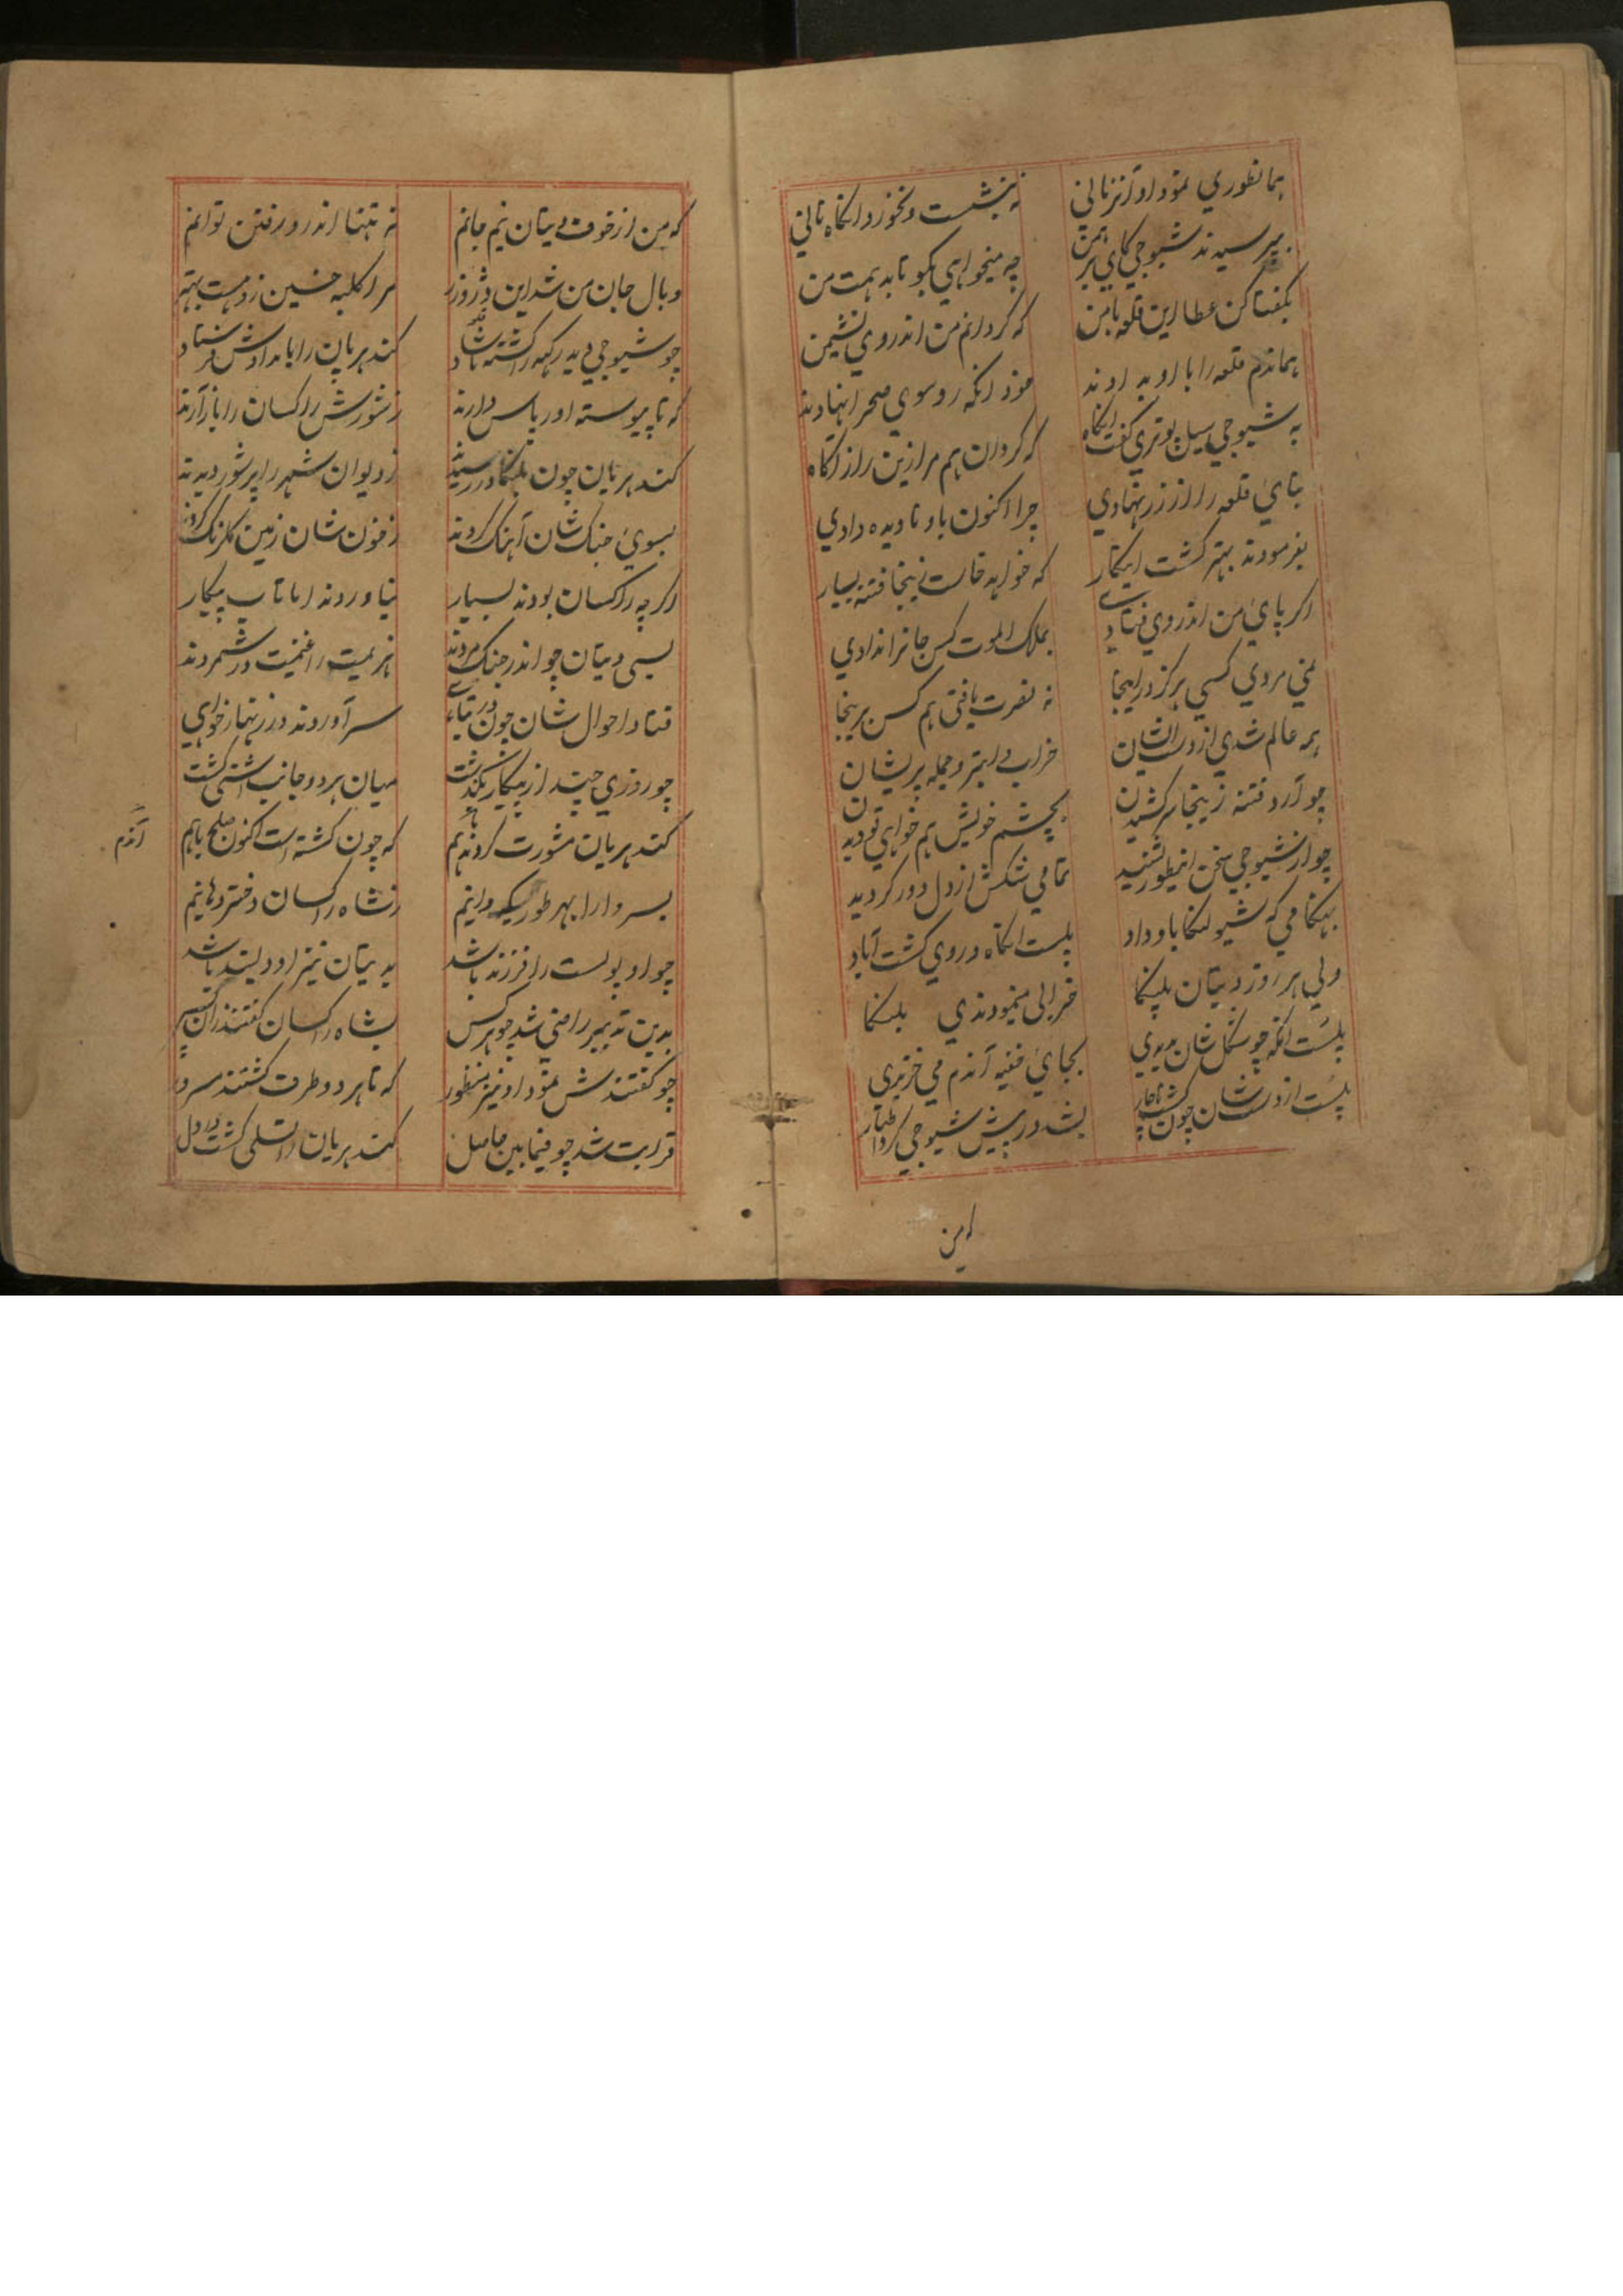 همانطوری نمود او آنزمانی
نه بنشست و نخورد آنگاه نانی
بپرسیدند شیوجی کای برهمن
چه میخواهی بگو تا بدهمت من
بگفتا کن عطا این قلعه با من
که گردانم من اندروی نشیمن
هماندم قلعه را با او بدادند
خود آنکه رو سوی صحرا نهادند
به شیوجی سیل پوتری گفت آنگاه
که گردان هم مرا زین راز آگاه
بنای قلعه را از زر نهادی
چرا اکنون باو نادیده دادی
بفرمودند بهتر گشت اینکار
که خواهد خاست زینجا فتنه بسیار
اگر پای من اندروی فتادی
بملک الموت کس جانرا ندادی
نمی مردی کسی هرگز در اینجا
نه نصرت یافتی هم کس برینجا
همه عالم شدی از دست ایشان
خراب و ابتر و جمله پریشان
چو آرد فتنه زینجا سر کشیدن
بچشم خویش هم خواهی تو دیدن
چو از شیوجی سخن اینطور بشنید
تمامی شکش از دل دور گردید
بهنگامی که شیو لنکا باو داد
پلست آنگاه در وی گشت آباد
ولی هر روز دیتان پلنکا
خرابی مینمودندی بلنکا
پلست آنگه چو شکل شان بدیدی
بجای خفیه آندم می خزیدی
پلست از دست شان چون گشت ناچار
بشد در پیش شیوجی کرد اظهار
که من
که من از خوف دیتان نیم جانم
نه تنها اندرو رفتن توانم
وبال جان من شد این دژ زر
مرا کلبه خسین زو هست بهتر
چو شیوجی دید رکهه را گشته ناشاد
کندهربان را بامدادش فرستاد
که تا پیوسته او را پاس دارند
ز شورش راکسان را باز آرند
کندهربان چون بلنکا در رسیدند
ز دیوان شهر را پر شور دیدند
بسوی جنگ شان آهنگ کردند
ز خون شان زمین گلرنگ کردند
اگرچه راکسان بودند بسیار
نیاوردند اما تاب پیکار
بسی دیتان چو اندر جنگ مردند
هزیمت را غنیمت در شمردند
فتاد احوال شان چون در تباهی
سر آوردند در زنهار خواهی
چو روزی چند از پیکار بگذشت
میان هر دو جانب آشتی گشت
کندهربان مشورت کردند باهم
که چون گشته است اکنون صلح باهم
آندم
بسروا را بهر طوریکه دانیم
ز شاه راکسان دختر دهانیم
چو او پولست را فرزند باشد
به دیتان نیز او دلبند باشد
بدین تدبیر راضی شد چو هر کس
بشاه راکسان گفتند زان پس
چو گفتندش نمود او نیز منظور
که تا هر دو طرف گشتند مسرور
قرابت شد چو فیمابین حاصل
کندهربان را تسلی گشت در دل